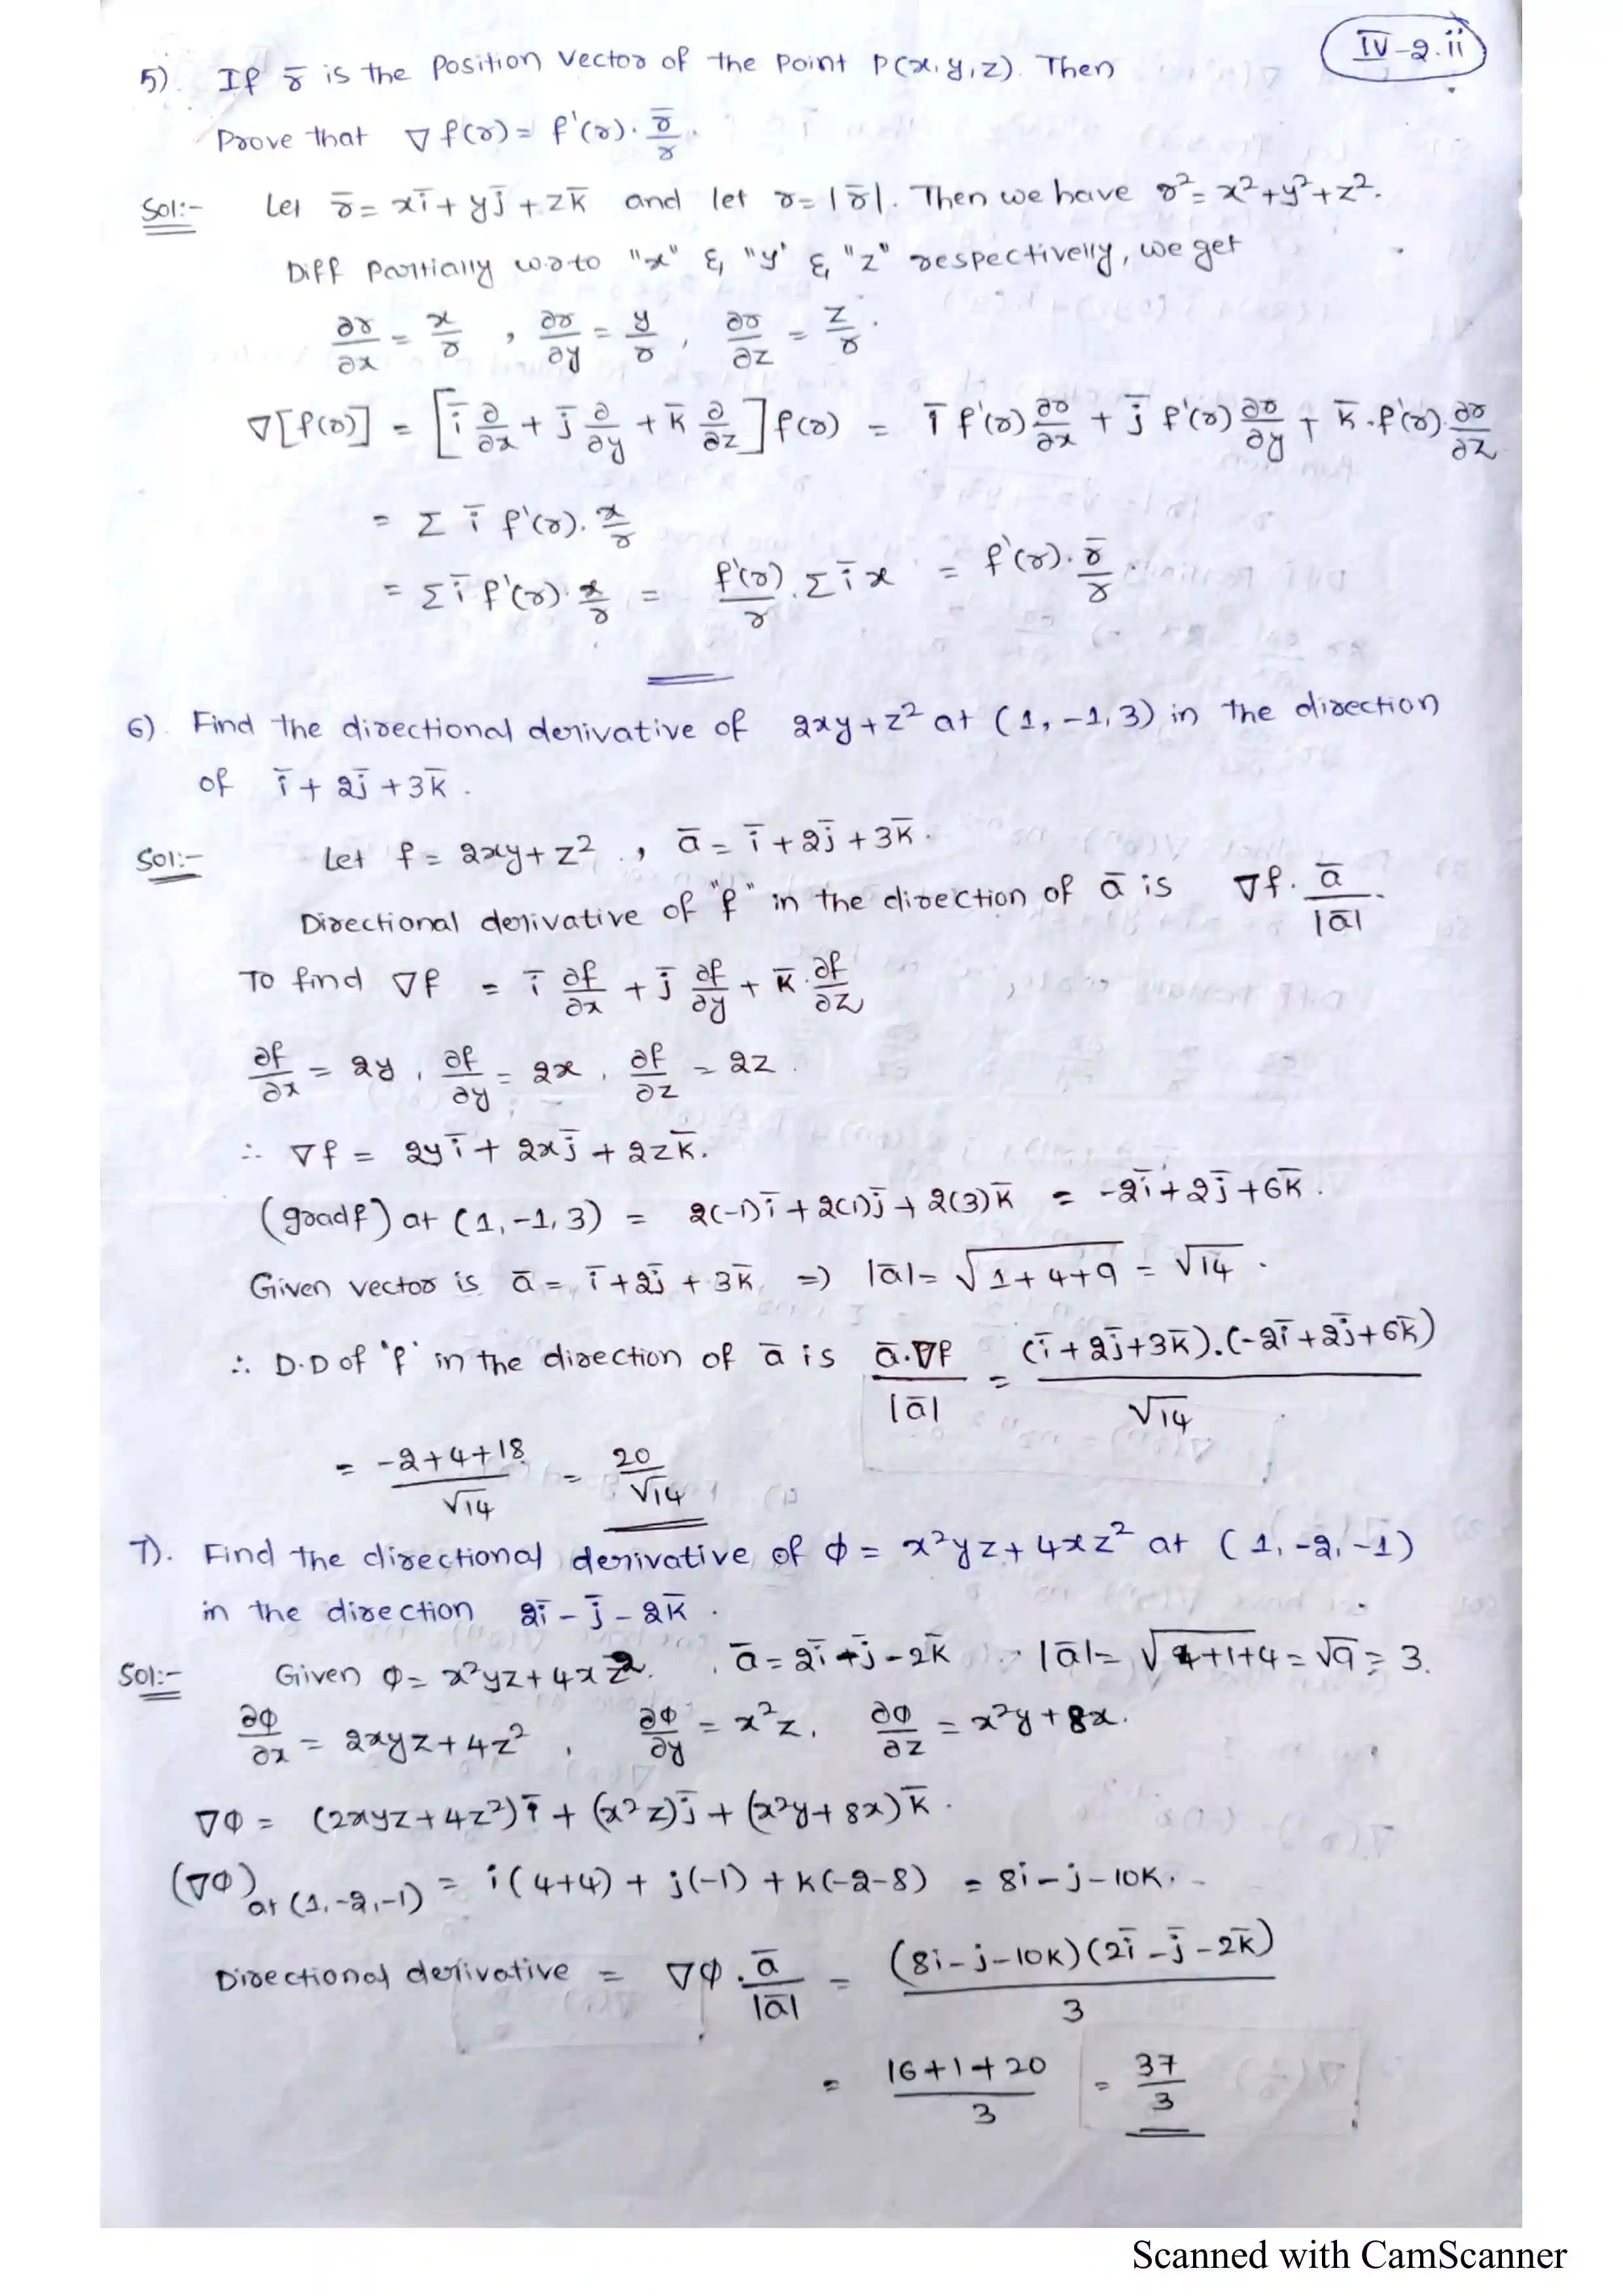 IV-2.ii
5). If r̄ is the Position vector of the Point P(x,y,z). Then
Prove that ∇f(r) = f'(r). r̄/r.
Sol:- Let r̄ = xī + yj̄ + zk̄ and let r = |r̄|. Then we have r² = x²+y²+z².
Diff Partially w.r.to "x" & "y" & "z" respectivelly, we get
∂r/∂x = x/r , ∂r/∂y = y/r , ∂r/∂z = z/r .
∇[f(r)] = [ī ∂/∂x + j̄ ∂/∂y + k̄ ∂/∂z] f(r) = ī f'(r) ∂r/∂x + j̄ f'(r) ∂r/∂y + k̄ .f'(r). ∂r/∂z
= Σ ī f'(r). x/r
= Σ ī f'(r). x/r = f'(r)/r . Σ ī x = f'(r). r̄/r .
6). Find the directional derivative of 2xy+z² at (1,-1,3) in the direction
of ī + 2j̄ + 3k̄ .
Sol:- Let f = 2xy + z² , ā = ī + 2j̄ + 3k̄ .
Directional derivative of "f" in the direction of ā is ∇f. ā/|ā| .
To find ∇f = ī ∂f/∂x + j̄ ∂f/∂y + k̄ . ∂f/∂z
∂f/∂x = 2y , ∂f/∂y = 2x , ∂f/∂z = 2z .
∴ ∇f = 2yī + 2xj̄ + 2zk̄.
(gradf) at (1,-1,3) = 2(-1)ī + 2(1)j̄ + 2(3)k̄ = -2ī + 2j̄ + 6k̄ .
Given vector is ā = ī + 2j̄ + 3k̄ ⇒ |ā| = √1+4+9 = √14 .
∴ D.D of 'f' in the direction of ā is ā.∇f/|ā| = (ī + 2j̄ + 3k̄).(-2ī + 2j̄ + 6k̄)/√14
= -2+4+18/√14 = 20/√14
7). Find the directional derivative of φ = x²yz + 4xz² at (1,-2,-1)
in the direction 2ī - j̄ - 2k̄ .
Sol:- Given φ = x²yz + 4xz². , ā = 2ī - j̄ - 2k̄ |ā| = √4+1+4 = √9 = 3.
∂φ/∂x = 2xyz + 4z² , ∂φ/∂y = x²z , ∂φ/∂z = x²y + 8x .
∇φ = (2xyz + 4z²)ī + (x²z)j̄ + (x²y + 8x)k̄ .
(∇φ) at (1,-2,-1) = i(4+4) + j(-1) + k(-2-8) = 8i - j - 10k .
Directional derivative = ∇φ . ā/|ā| = (8i - j - 10k)(2ī - j̄ - 2k̄)/3
= 16+1+20/3 = 37/3
Scanned with CamScanner